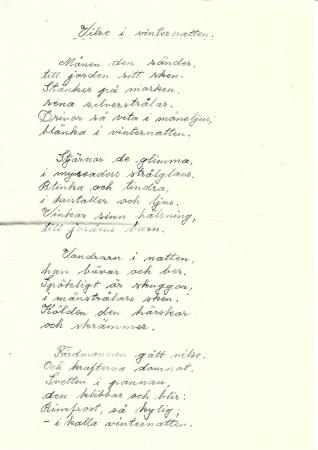 Vilse i vinternatten.
Månen den sänder,
till jorden sitt sken.
Stänker på marken.
rena silverstrålar.
Drivor så vita i måneljus,
blänka i vinternatten.
Stjärnor de glimma,
i myriaders strålglans.
Blinka och tindra,
i kristaller och ljus.
Vinkar sinn hälsning,
till jordens barn.
Vandrarn i natten,
han bävar och ber.
Spöklikt är skuggor,
i månstrålars sken.
Kölden den härskar
och skrämmer.
Färdmannen gått vilse.
Och krafterna domnat.
Svetten i pannan,
den klibbar och blir:
Rimfrost, så kylig;
- i kalla vinternatten.